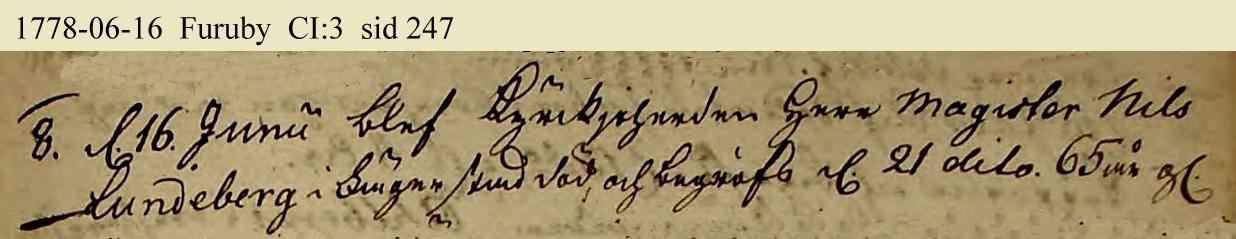 1778-06-16 Furuby CI:3 sid 247
8. d. 16. Junii blef Kyrckjoherden Herr Magister Nils
Lundeberg i stund död, och begrofs d. 21 dito. 65 år gl.